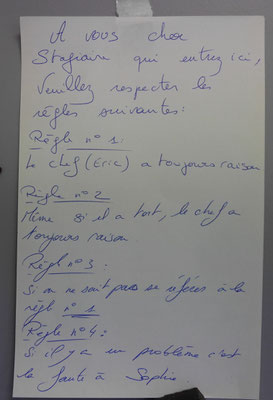 A vous cher
Stagiaire qui entrez ici,
Veuillez respecter les
règles suivantes :
Règle n° 1 :
Le chef (Eric) a toujours raison
Règle n° 2
Même si il a tort, le chef a
toujours raison.
Règle n° 3 :
Si on ne sait pas se référer à la
règle n° 1
Règle n° 4 :
Si il y a un problème c'est
la faute à Sophie.